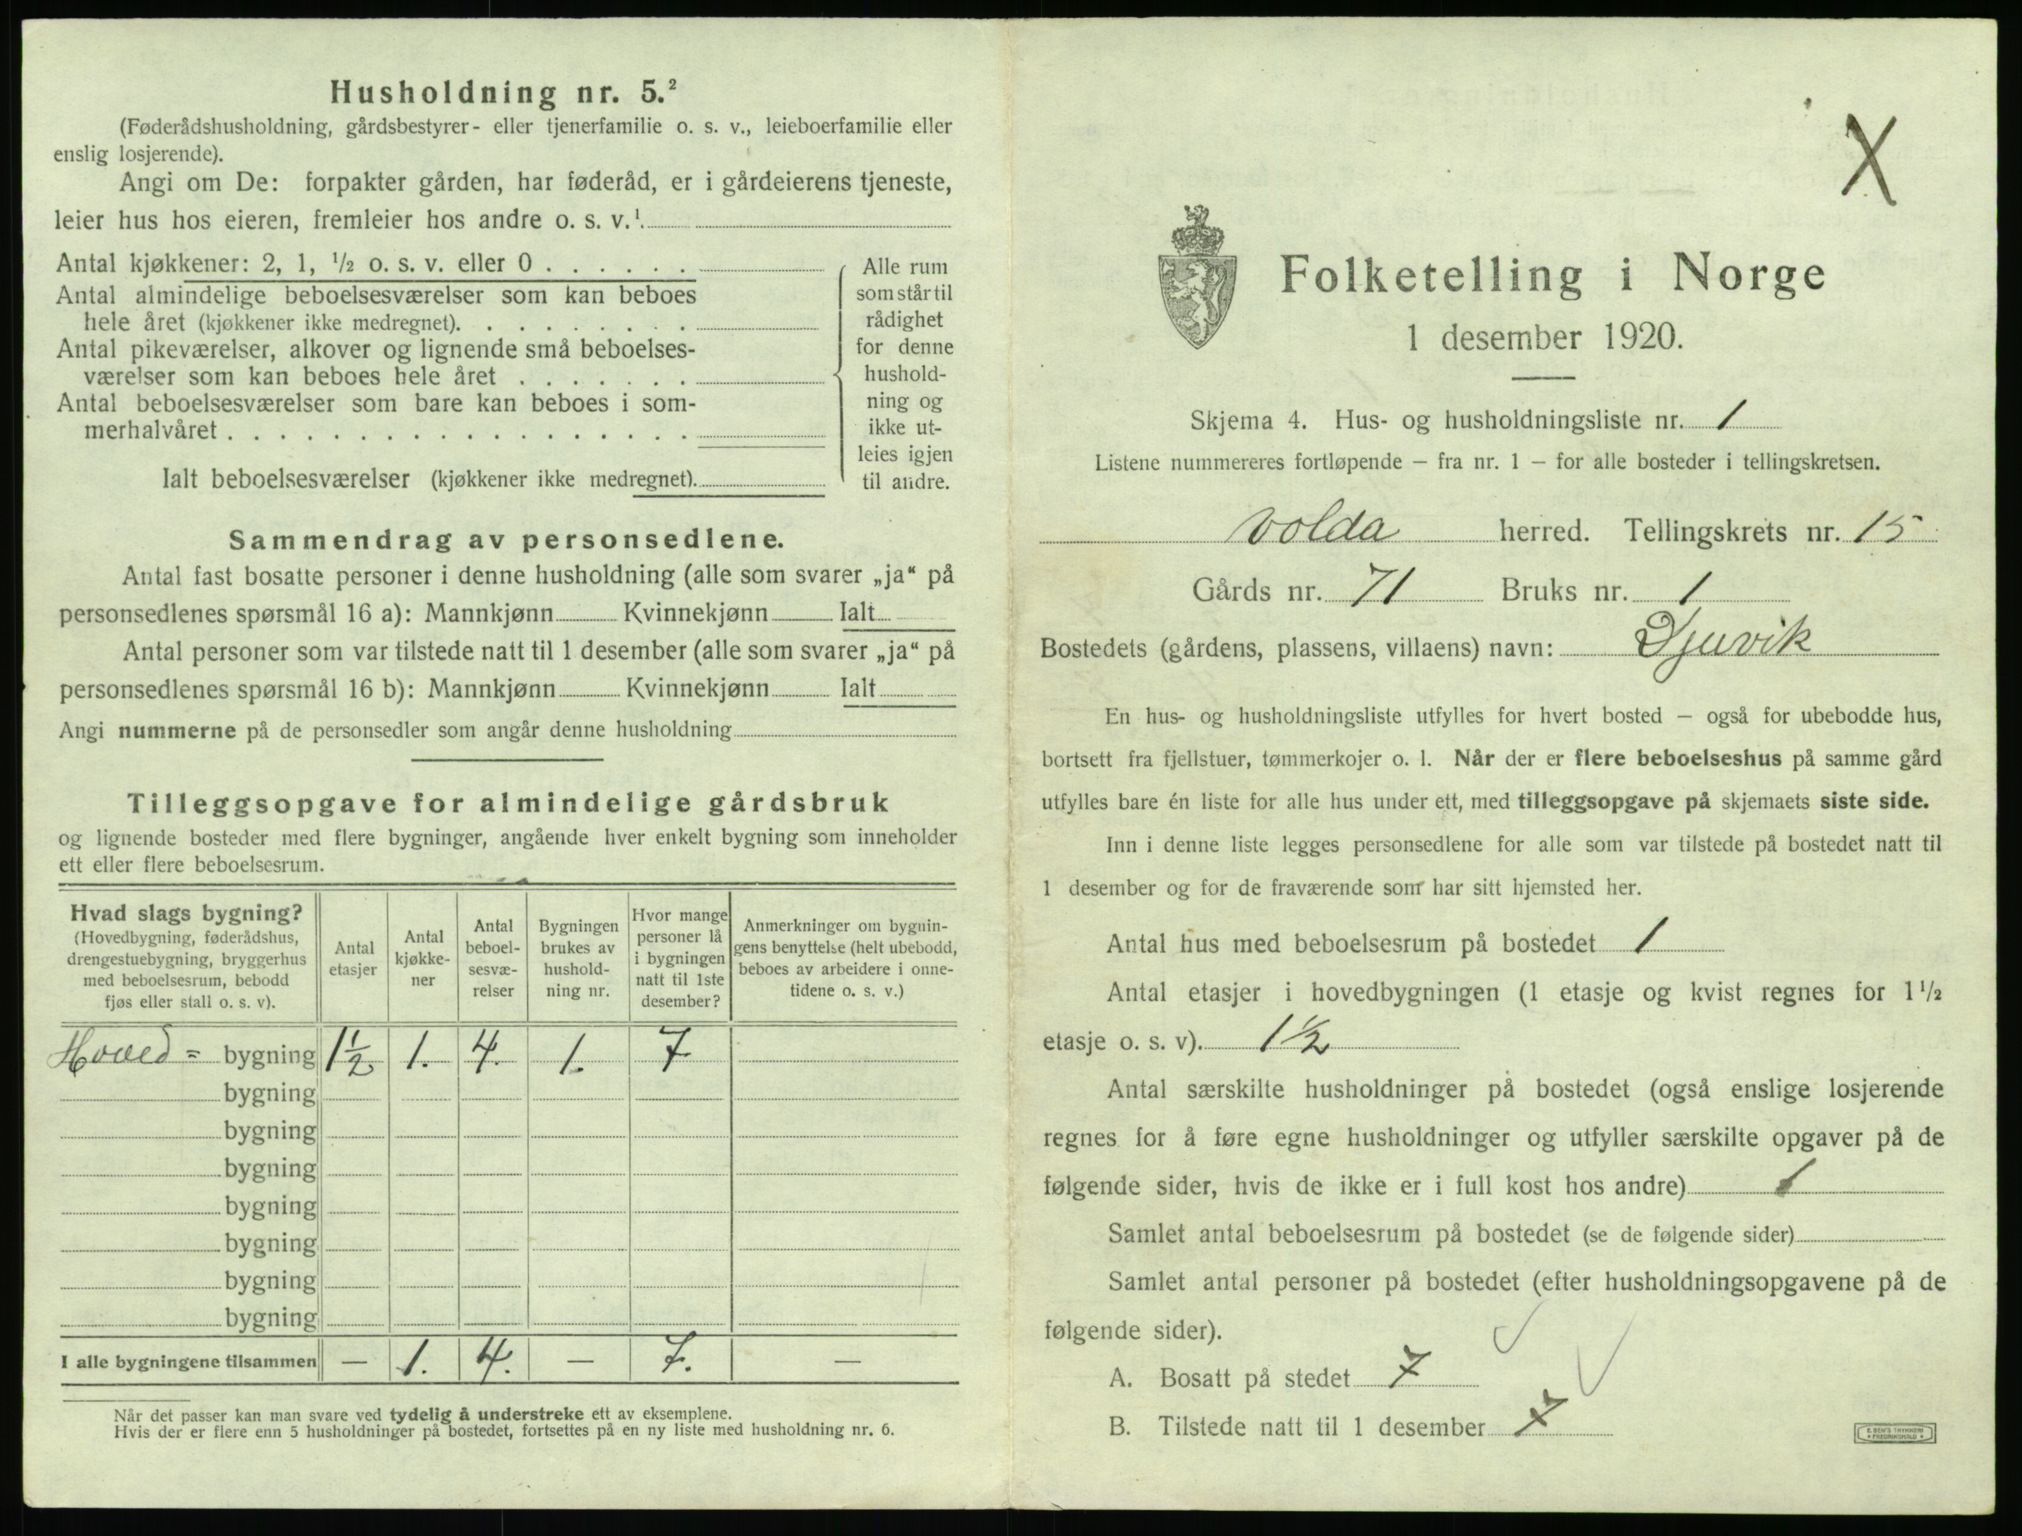 Husholdning nr. 5.²
(Føderådshusholdning, gårdsbestyrer- eller tjenerfamilie o. s. v., leieboerfamilie eller
enslig losjerende).
Angi om De: forpakter gården, har føderåd, er i gårdeierens tjeneste,
leier hus hos eieren, fremleier hos andre o. s. v.¹
Antal kjøkkener: 2, 1, ½ o. s. v. eller 0 . . . . . .
Antal almindelige beboelsesværelser som kan beboes
hele året (kjøkkener ikke medregnet). . . . . . . . .
Antal pikeværelser, alkover og lignende små beboelses-
værelser som kan beboes hele året . . . . . . .
Antal beboelsesværelser som bare kan beboes i som-
merhalvåret . . . . . . . . . . . . . . . . . .
Ialt beboelsesværelser (kjøkkener ikke medregnet).
Alle rum
som står til
rådighet
for denne
hushold-
ning og
ikke ut-
leies igjen
til andre.
Sammendrag av personsedlene.
Antal fast bosatte personer i denne husholdning (alle som svarer „ja“ på
personsedlenes spørsmål 16 a): Mannkjønn Kvinnekjønn Ialt
Antal personer som var tilstede natt til 1 desember (alle som svarer „ja“ på
personsedlenes spørsmål 16 b): Mannkjønn Kvinnekjønn Ialt
Angi nummerne på de personsedler som angår denne husholdning
Tilleggsopgave for almindelige gårdsbruk
og lignende bosteder med flere bygninger, angående hver enkelt bygning som inneholder
ett eller flere beboelsesrum.
Hvad slags bygning?
(Hovedbygning, føderådshus,
drengestuebygning, bryggerhus
med beboelsesrum, bebodd
fjøs eller stall o. s. v).
Antal
etasjer
Antal
kjøkke-
ner
Antal
beboel-
sesvæ-
relser
Bygningen
brukes av
hushold-
ning nr.
Hvor mange
personer lå
i bygningen
natt til 1ste
desember?
Anmerkninger om bygnin-
gens benyttelse (helt ubebodd,
beboes av arbeidere i onne-
tidene o. s. v.)
Hoved = bygning 1½ 1. 4. 1. 7
bygning
bygning
bygning
bygning
bygning
bygning
bygning
I alle bygningene tilsammen — 1. 4. — 7. —
Når det passer kan man svare ved tydelig å understreke ett av eksemplene.
Hvis der er flere enn 5 husholdninger på bostedet, fortsettes på en ny liste med husholdning nr. 6.
X
Folketelling i Norge
1 desember 1920.
Skjema 4. Hus- og husholdningsliste nr. 1
Listene nummereres fortløpende – fra nr. 1 – for alle bosteder i tellingskretsen.
Volda herred. Tellingskrets nr. 15
Gårds nr. 71 Bruks nr. 1
Bostedets (gårdens, plassens, villaens) navn: Djuvik
En hus- og husholdningsliste utfylles for hvert bosted – også for ubebodde hus,
bortsett fra fjellstuer, tømmerkojer o. l. Når der er flere beboelseshus på samme gård
utfylles bare én liste for alle hus under ett, med tilleggsopgave på skjemaets siste side.
Inn i denne liste legges personsedlene for alle som var tilstede på bostedet natt til
1 desember og for de fraværende som har sitt hjemsted her.
Antal hus med beboelsesrum på bostedet 1
Antal etasjer i hovedbygningen (1 etasje og kvist regnes for 1½
etasje o. s. v). 1½
Antal særskilte husholdninger på bostedet (også enslige losjerende
regnes for å føre egne husholdninger og utfyller særskilte opgaver på de
følgende sider, hvis de ikke er i full kost hos andre) 1
Samlet antal beboelsesrum på bostedet (se de følgende sider)
Samlet antal personer på bostedet (efter husholdningsopgavene på de
følgende sider).
A. Bosatt på stedet 7
B. Tilstede natt til 1 desember 7